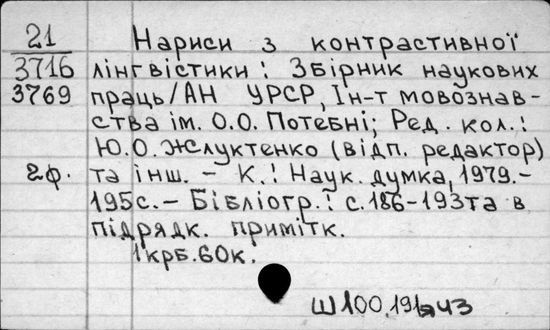 21 Нариси з контрастивної
3716 лінгвістики: Збірник наукових
3769 праць/АН УРСР, Ін-т мовознав-
ства ім. О.О. Потебні; Ред. кол.:
Ю.О. Жлуктенко (відп. редактор)
2ф. та інш. – К.: Наук. думка, 1979.–
195с.– Бібліогр.: с.186-193 та в
підрядк. примітк.
1крб.60к.
Ш100,191 я ЧЗ